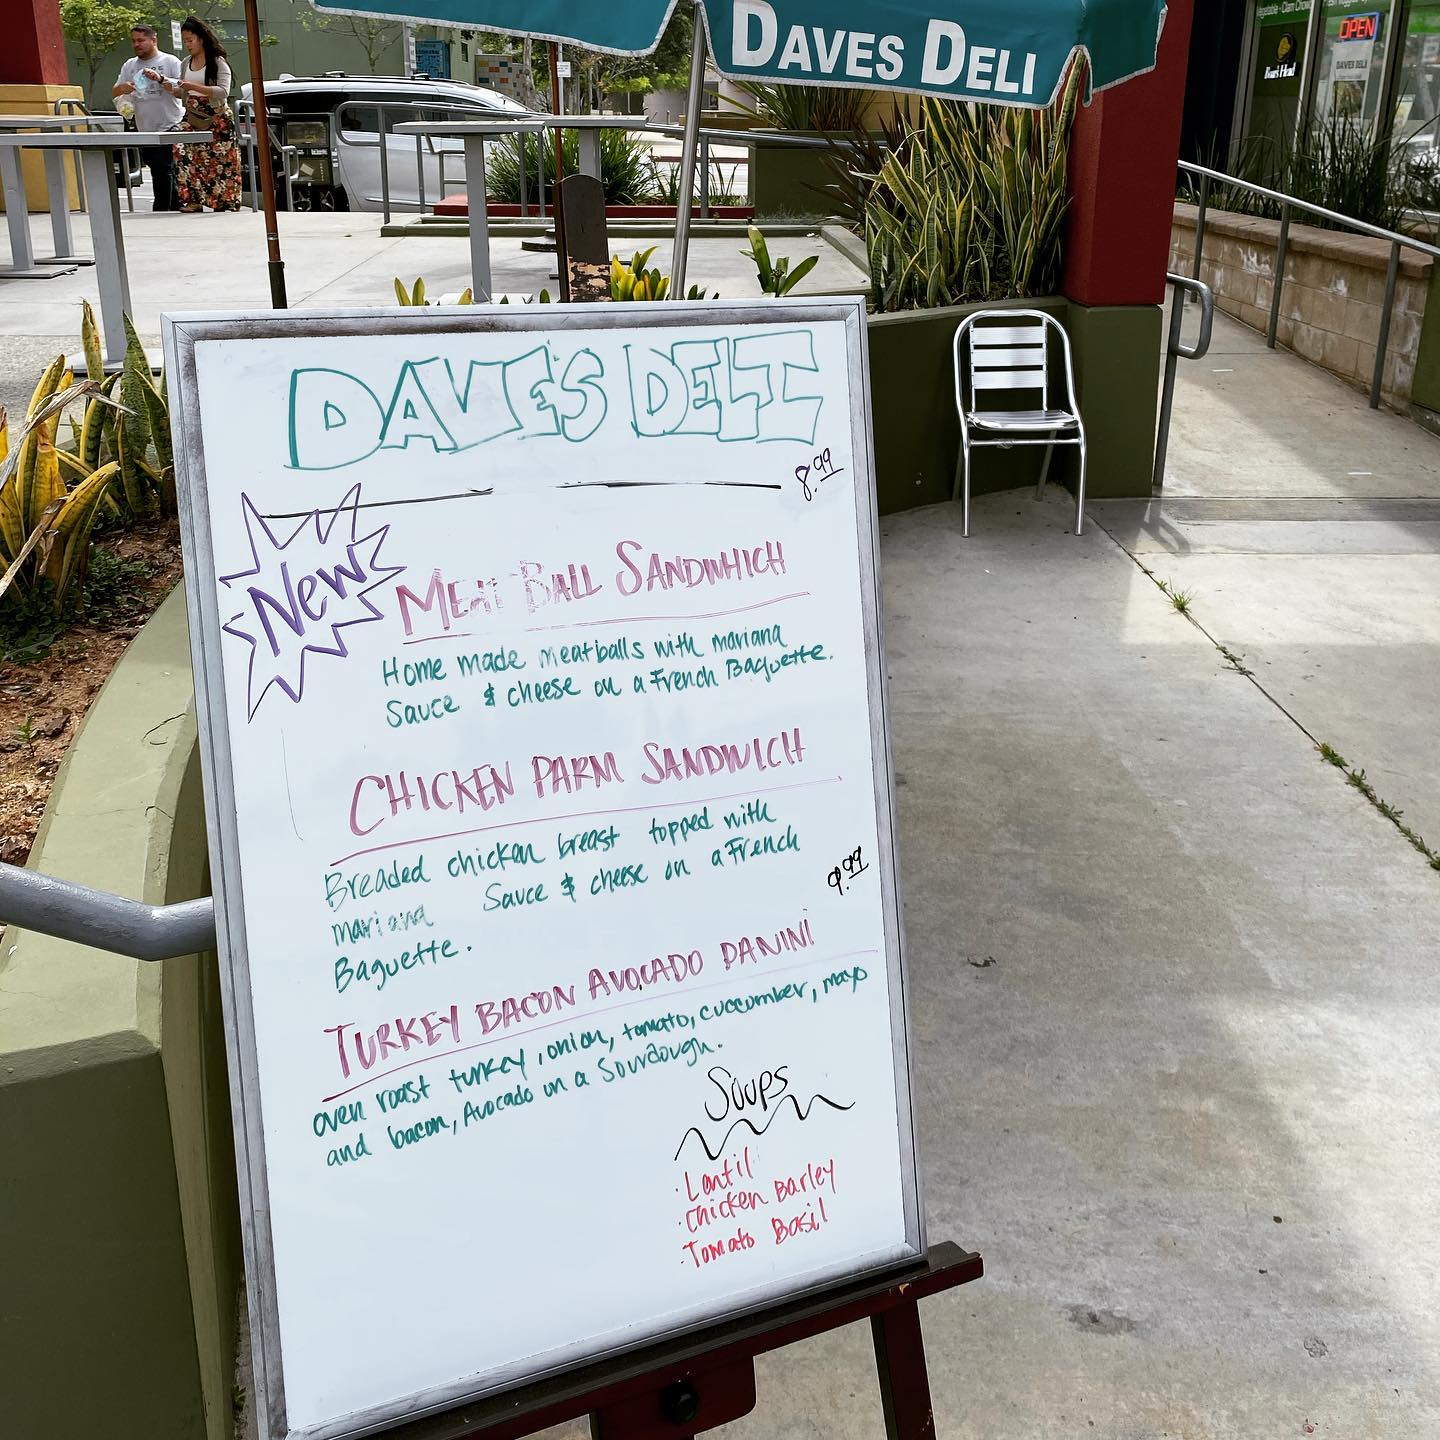 DAVES DELI
OPEN
DAVES DELI
Boar's Head
DAVE'S DELI
8.99
New
MEAT BALL SANDWHICH
Home made meatballs with mariana
Sauce & cheese on a French Baguette.
CHICKEN PARM SANDWICH
Breaded chicken breast topped with
mariana Sauce & cheese on a French
Baguette.
9.99
TURKEY BACON AVOCADO PANINI
oven roast turkey, onion, tomato, cuccomber, mayo
and bacon, Avocado on a Sourdough.
Soups
· Lentil
· Chicken Barley
· Tomato Basil